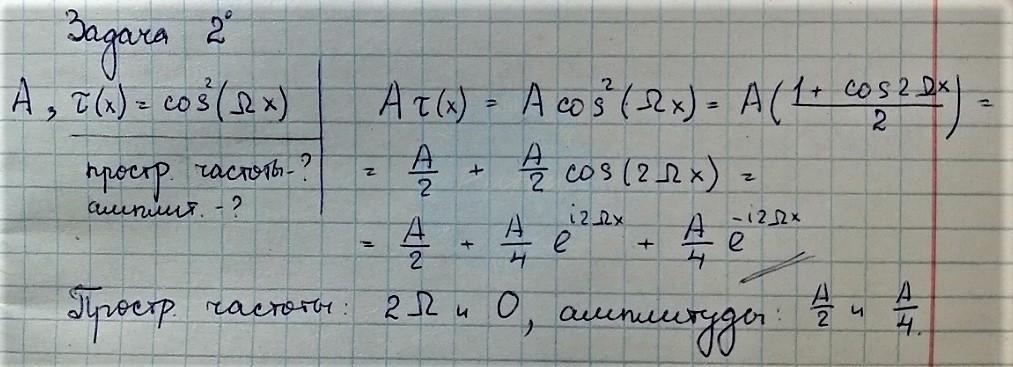 Задача 2°
A, τ(x) = cos²(Ωx)
простр. частоты - ?
амплит. - ?
A τ(x) = A cos²(Ωx) = A((1 + cos2Ωx)/2) =
= A/2 + A/2 cos(2Ωx) =
= A/2 + A/4 e^(i2Ωx) + A/4 e^(-i2Ωx)
Простр. частоты: 2Ω и 0, амплитуды: A/2 и A/4.